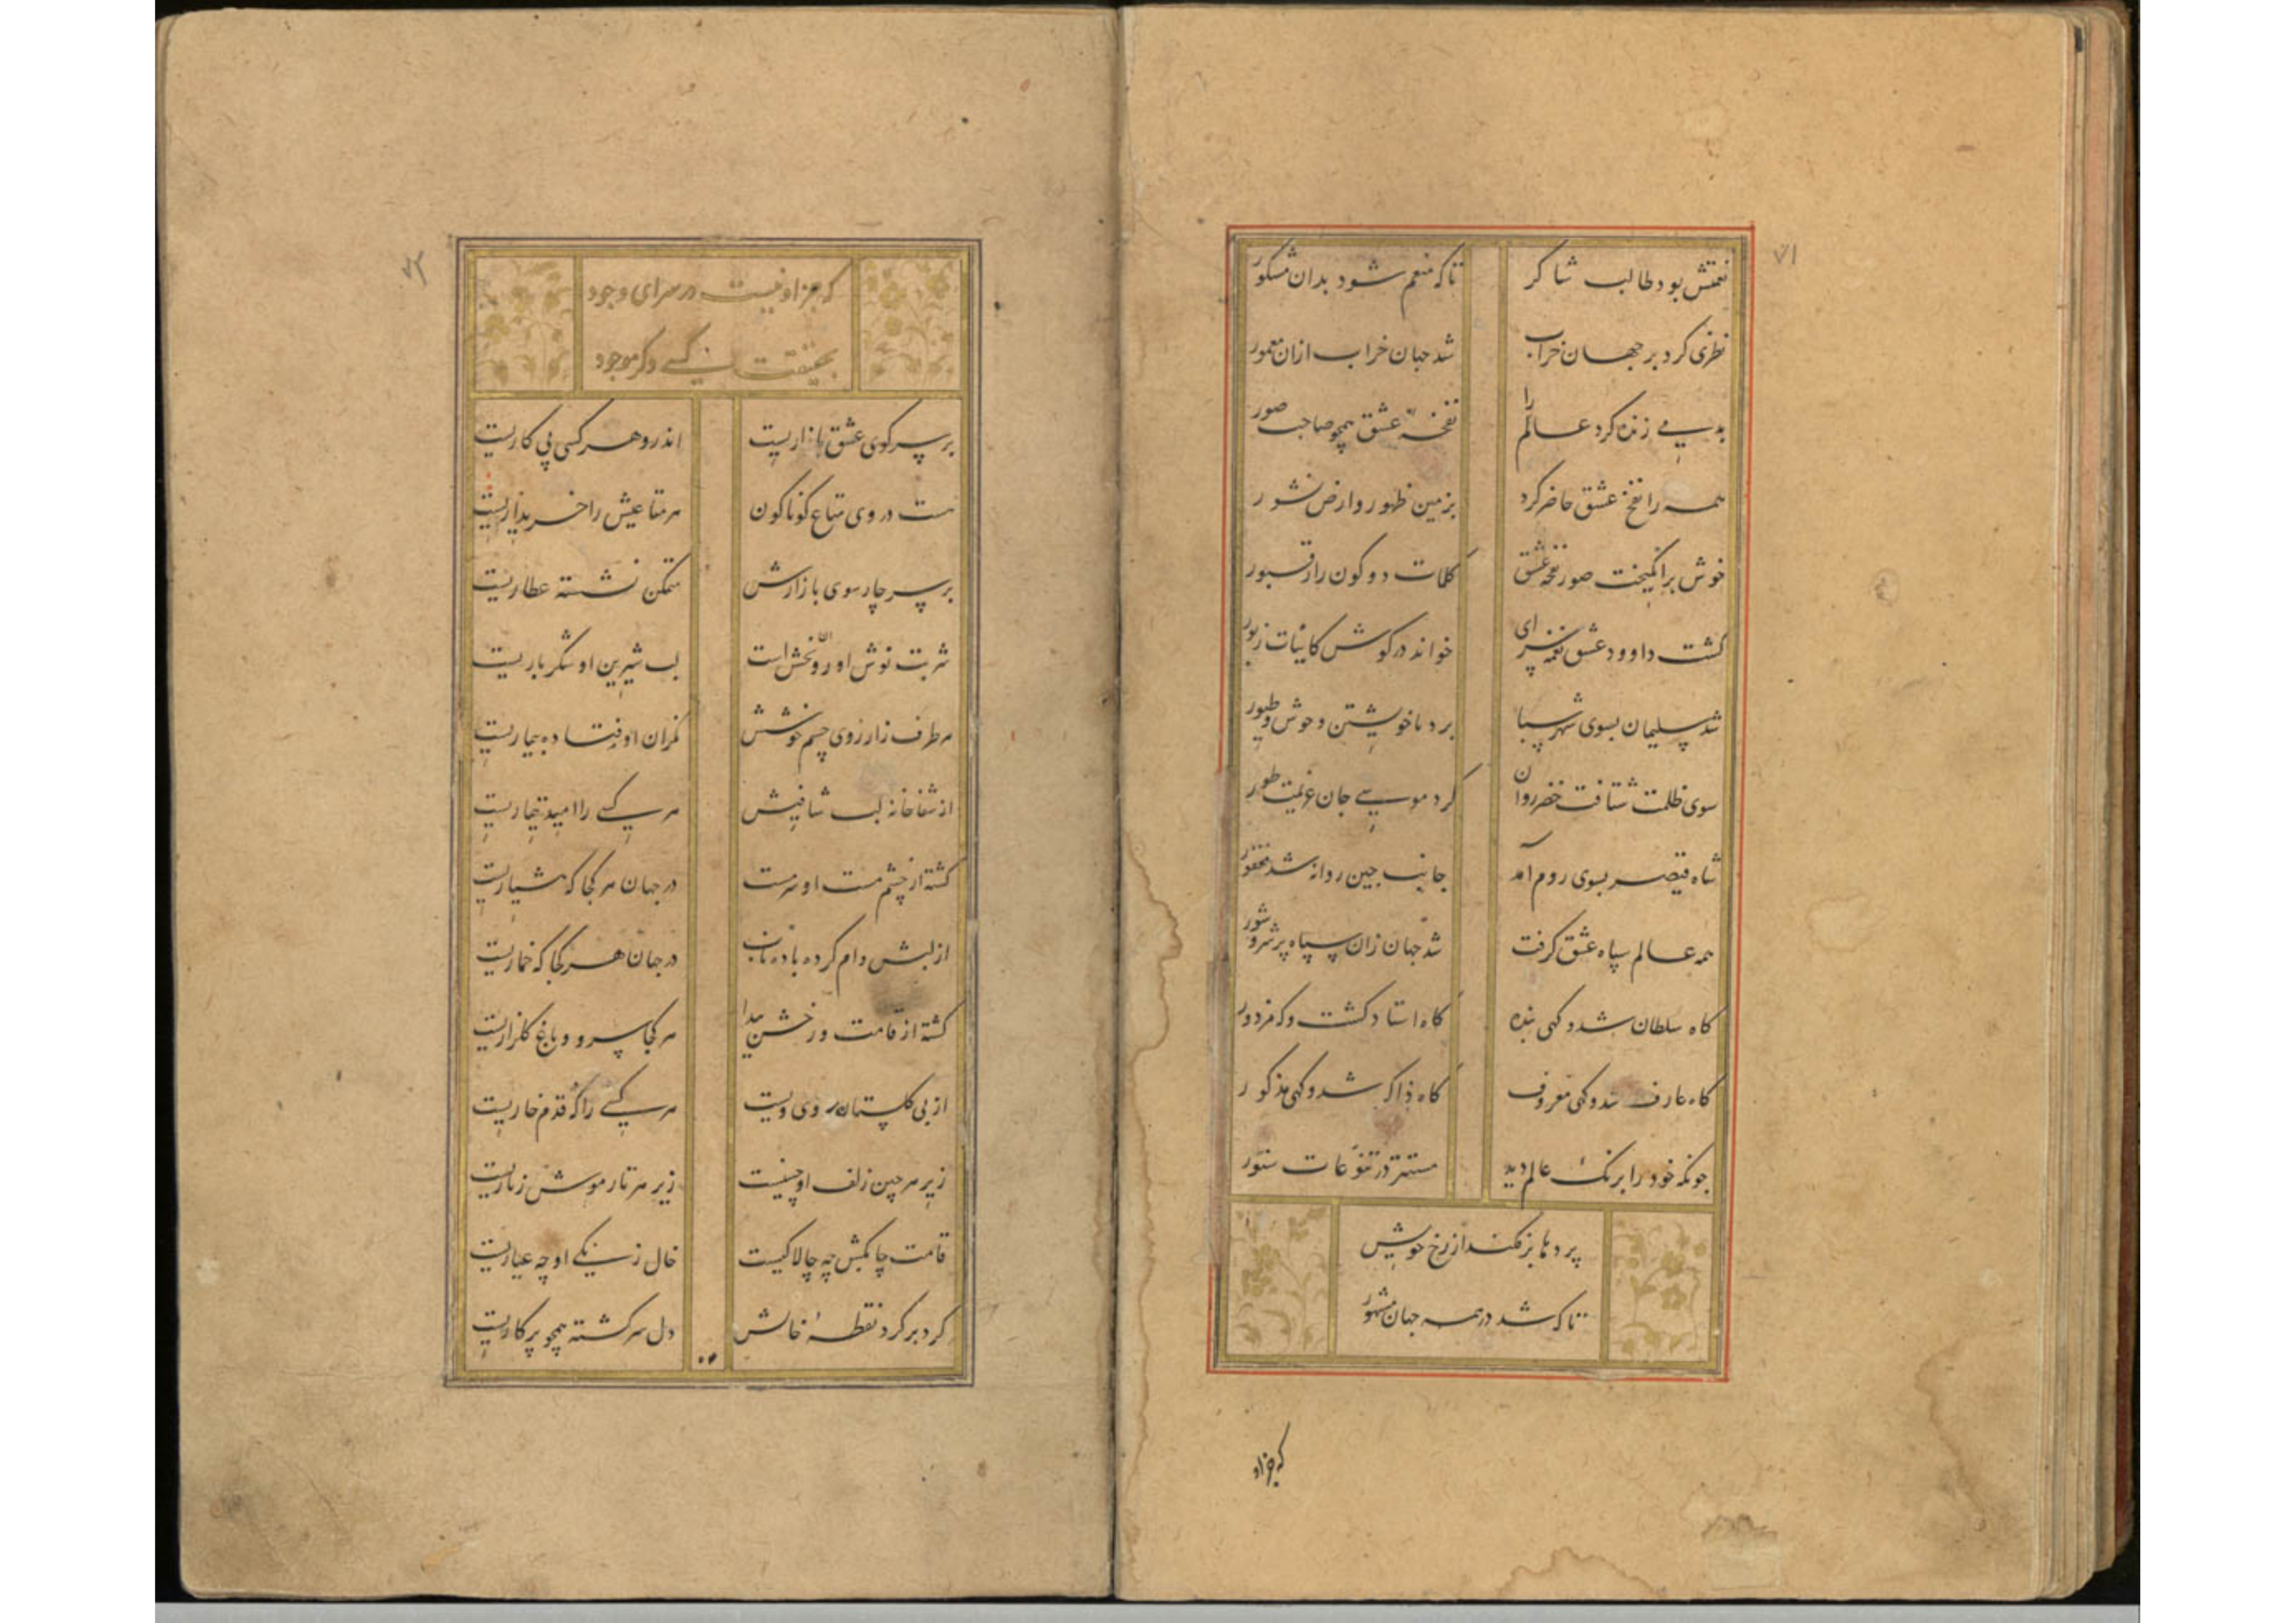 ۷۱
نعمتش بود طالب شاکر
تاکه منعم شود بدان مشکور
نظری کرد بر جهان خراب
شد جهان خراب ازان معمور
بدمی زنده کرد عالم را
نفخهٔ عشق همچو صاحب صور
همه را نفخ عشق حاضر کرد
بزمین ظهور و ارض نشور
خوش برانگیخت صور نفخه عشق
کلمات دو کون را ز قبور
کشت داوود عشق نغمه سرای
خواند در کوش کاینات زبور
شد سلیمان بسوی شهر سبا
برد با خویشتن وحوش و طیور
سوی ظلمت شتافت خضر روان
کرد موسی جان عزیمت طور
شاه قیصر بسوی روم آمد
جانب چین روانه شد فغفور
همه عالم سپاه عشق کرفت
شد جهان زان سپاه پر شر و شور
کاه سلطان شد و کهی بنده
کاه استاد کشت و که مزدور
کاه عارف شد و کهی معروف
کاه ذاکر شد و کهی مذکور
چونکه خود را برنک عالم دید
مستتر در تنوعات ستور
پردها برفکند از رخ خویش
تا که شد در همه جهان مشهور
که جز او
که جز او نیست در سرای وجود
بحقیقت کسی دکر موجود
بر سر کوی عشق بازاریست
اندرو هر کسی پی کاریست
هست در وی متاع کوناکون
هر متاعیش را خریداریست
بر سر چار سوی بازارش
متمکن نشسته عطاریست
شربت نوش او روان بخش است
لب شیرین او شکر باریست
هر طرف ز ارزوی چشم خوشش
نکران اوفتاده بیماریست
از شفاخانه لب شافیش
هر کسی را امید تیماریست
کشته از چشم مست او سرمست
در جهان هر کجا که هشیاریست
از لبش وام کرده باده ناب
در جهان هر کجا که خماریست
کشته از قامت و رخش پیدا
هر کجا سرو و باغ و کلزاریست
از پی کلستان روی ویست
هر کسی را که در قدم خاریست
زیر هر چین زلف او چینیست
زیر هر تار موش زناریست
قامت چابکش چه چالاکیست
خال زنکی او چه عیاریست
کرد بر کرد نقطهٔ خالش
دل سرکشته همچو پرکاریست